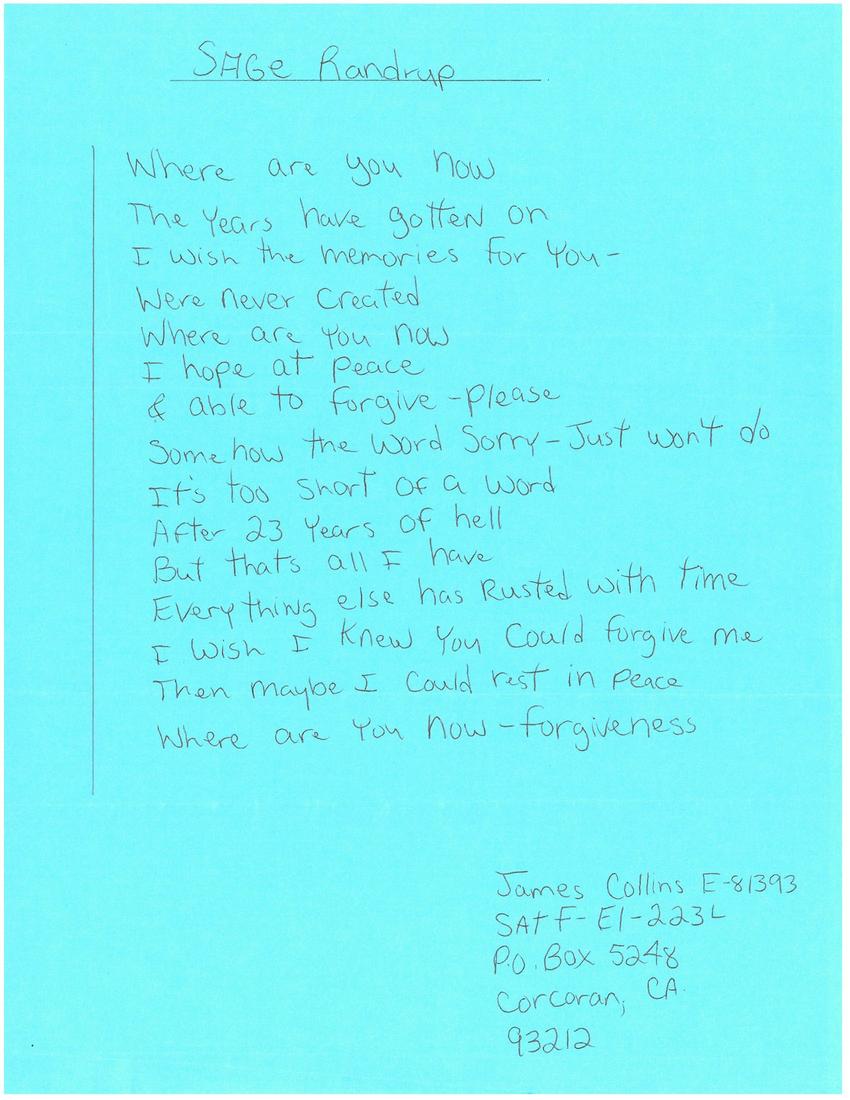 SAGe Randrup
Where are you now
The Years have gotten on
I wish the memories for You-
Were never created
Where are You now
I hope at peace
& able to forgive - please
Somehow the word Sorry - Just won't do
It's too short of a word
After 23 Years of hell
But thats all I have
Everything else has Rusted with time
I wish I knew You Could forgive me
Then maybe I could rest in peace
Where are You now - forgiveness
James Collins E-81393
SATF- E1-223L
P.O. Box 5248
Corcoran, CA.
93212